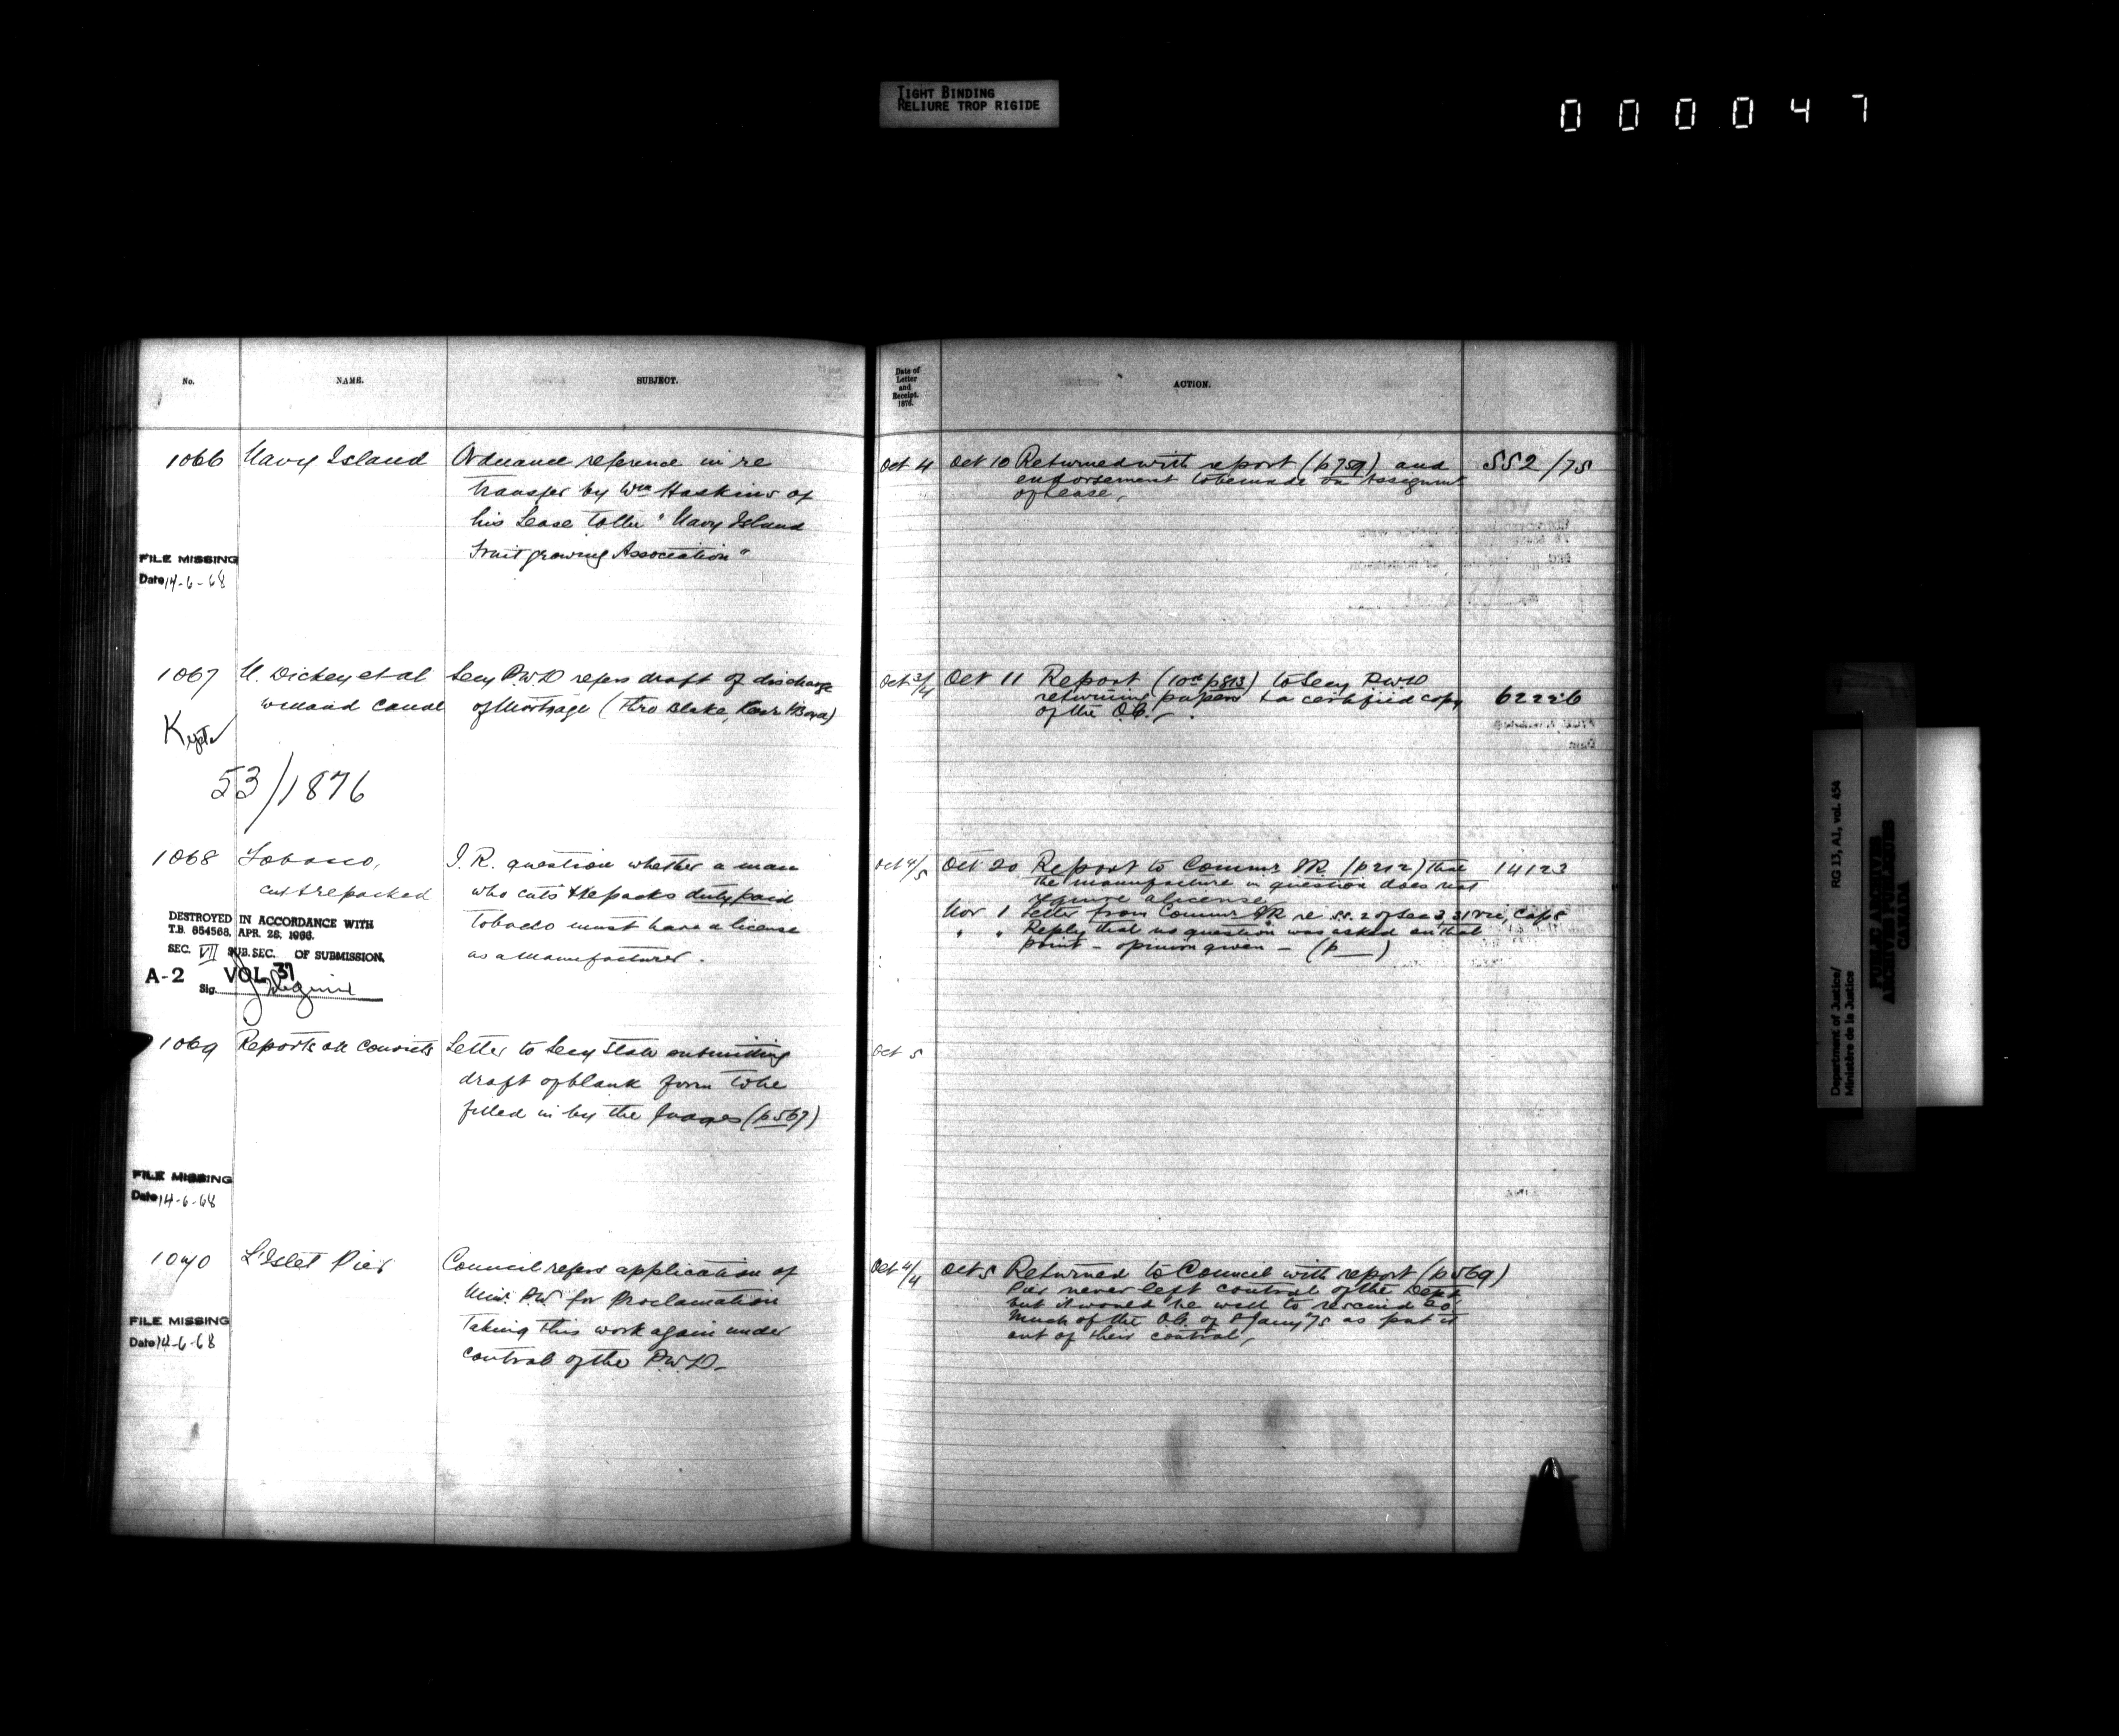 TIGHT BINDING
RELIURE TROP RIGIDE
000047
No.
NAME.
SUBJECT.
Date of
Letter
and
Receipt.
1876.
ACTION.
1066 Navy Island
Ordnance reference in re
transfer by Wm Haskins of
his Lease to the "Navy Island
Fruit growing Association"
FILE MISSING
Date 14-6-68
Oct 4
Oct 10 Returned with report (p759) and
endorsement to be made on Assignmt
of Lease,
552/75
1067 N. Dickey et al
Welland Canal
Secy P.W.D refers draft of discharge
of Mortgage (thro Blake, Kerr & Boyd)
53/1876
Oct 3/4
Oct 11 Report (10th p813) to Secy P.W.D
returning papers & a certified copy
of the O.C.
62226
1068 Tobacco,
cut & repacked
I.R. question whether a man
who cuts & repacks duty paid
tobacco must have a license
as a manufacturer.
DESTROYED IN ACCORDANCE WITH
T.B. 654568, APR. 26, 1966.
SEC. VII SUB.SEC. OF SUBMISSION,
A-2 VOL 37
Sig.
Oct 4/5
Oct 20 Report to Commr IR. (p212) that
the manufacture in question does not
require a license
Nov 1 Letter from Commr IR re s.s. 2 of Sec 3, 31 Vic, Cap 8
" " Reply that no question was asked on that
point - opinion given - (p )
14123
1069 Reports on Convicts
Letter to Secy State submitting
draft of blank form to be
filled in by the Judges (p567)
FILE MISSING
Date 14-6-68
Oct 5
1070 L'Islet Pier
Council refers application of
Minr. P.W. for Proclamation
taking this work again under
control of the P.W.D.
FILE MISSING
Date 14-6-68
Oct 4/4
Oct 5 Returned to Council with report (p569)
Pier never left control of the Dept
but it would be well to rescind so
much of the O.C. of 8 Jany 75 as put it
out of their control,
Department of Justice/
Ministère de la Justice
RG 13, A1, vol. 454
PUBLIC ARCHIVES
ARCHIVES PUBLIQUES
CANADA